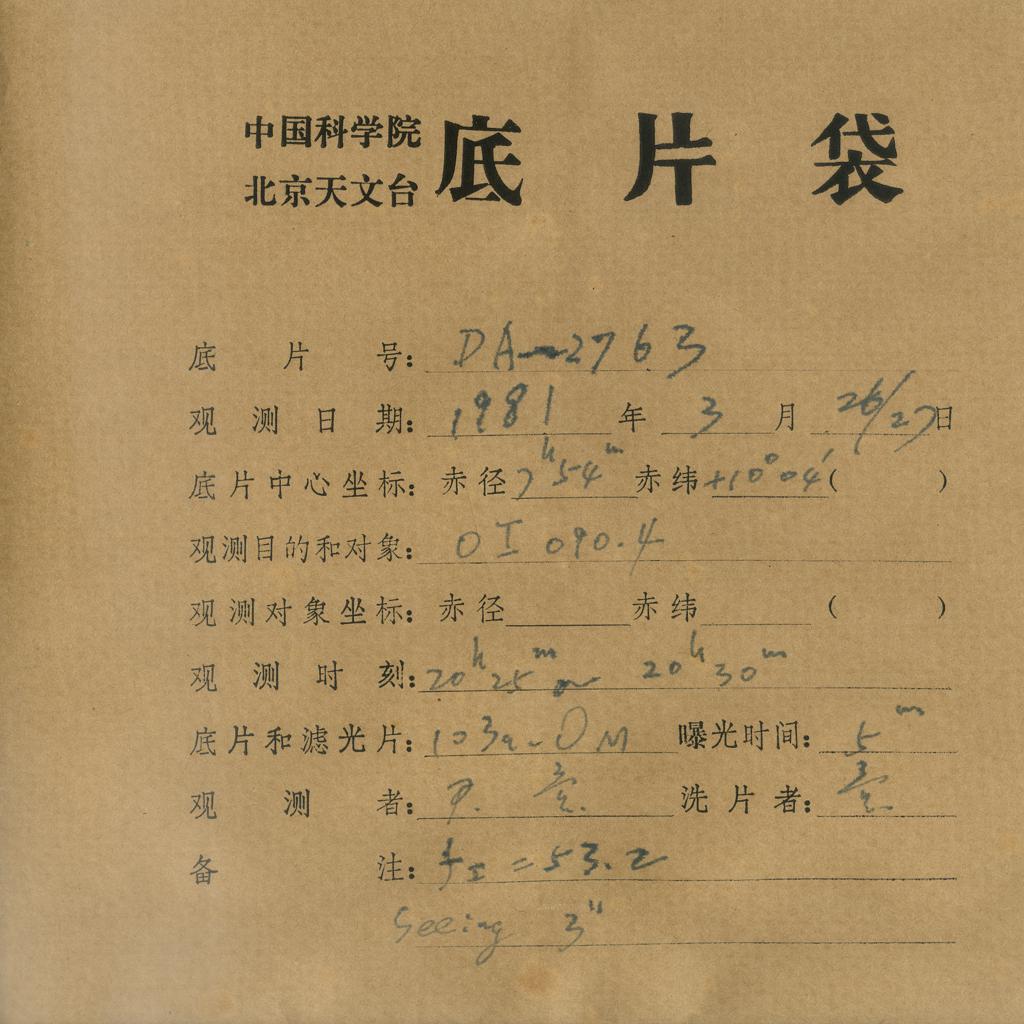 中国科学院
北京天文台
底片袋
底片号: DA-2763
观测日期: 1981年3月26/27日
底片中心坐标: 赤径 7h54m 赤纬 +10°04′( )
观测目的和对象: OI 090.4
观测对象坐标: 赤径 赤纬 ( )
观测时刻: 20h25m 20h30m
底片和滤光片: 103a-O M 曝光时间: 5m
观测者: 洗片者:
备注: = 53.2
Seeing 3"